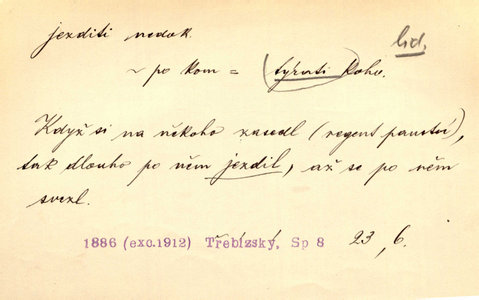 jezditi nedok.
lid.
~ po kom = (týrati) koho.
Když si na někoho zasedl (regent panství),
tak dlouho po něm jezdil, až se po něm
svezl.
1886 (exc.1912) Třebízský, Sp 8 23, 6.